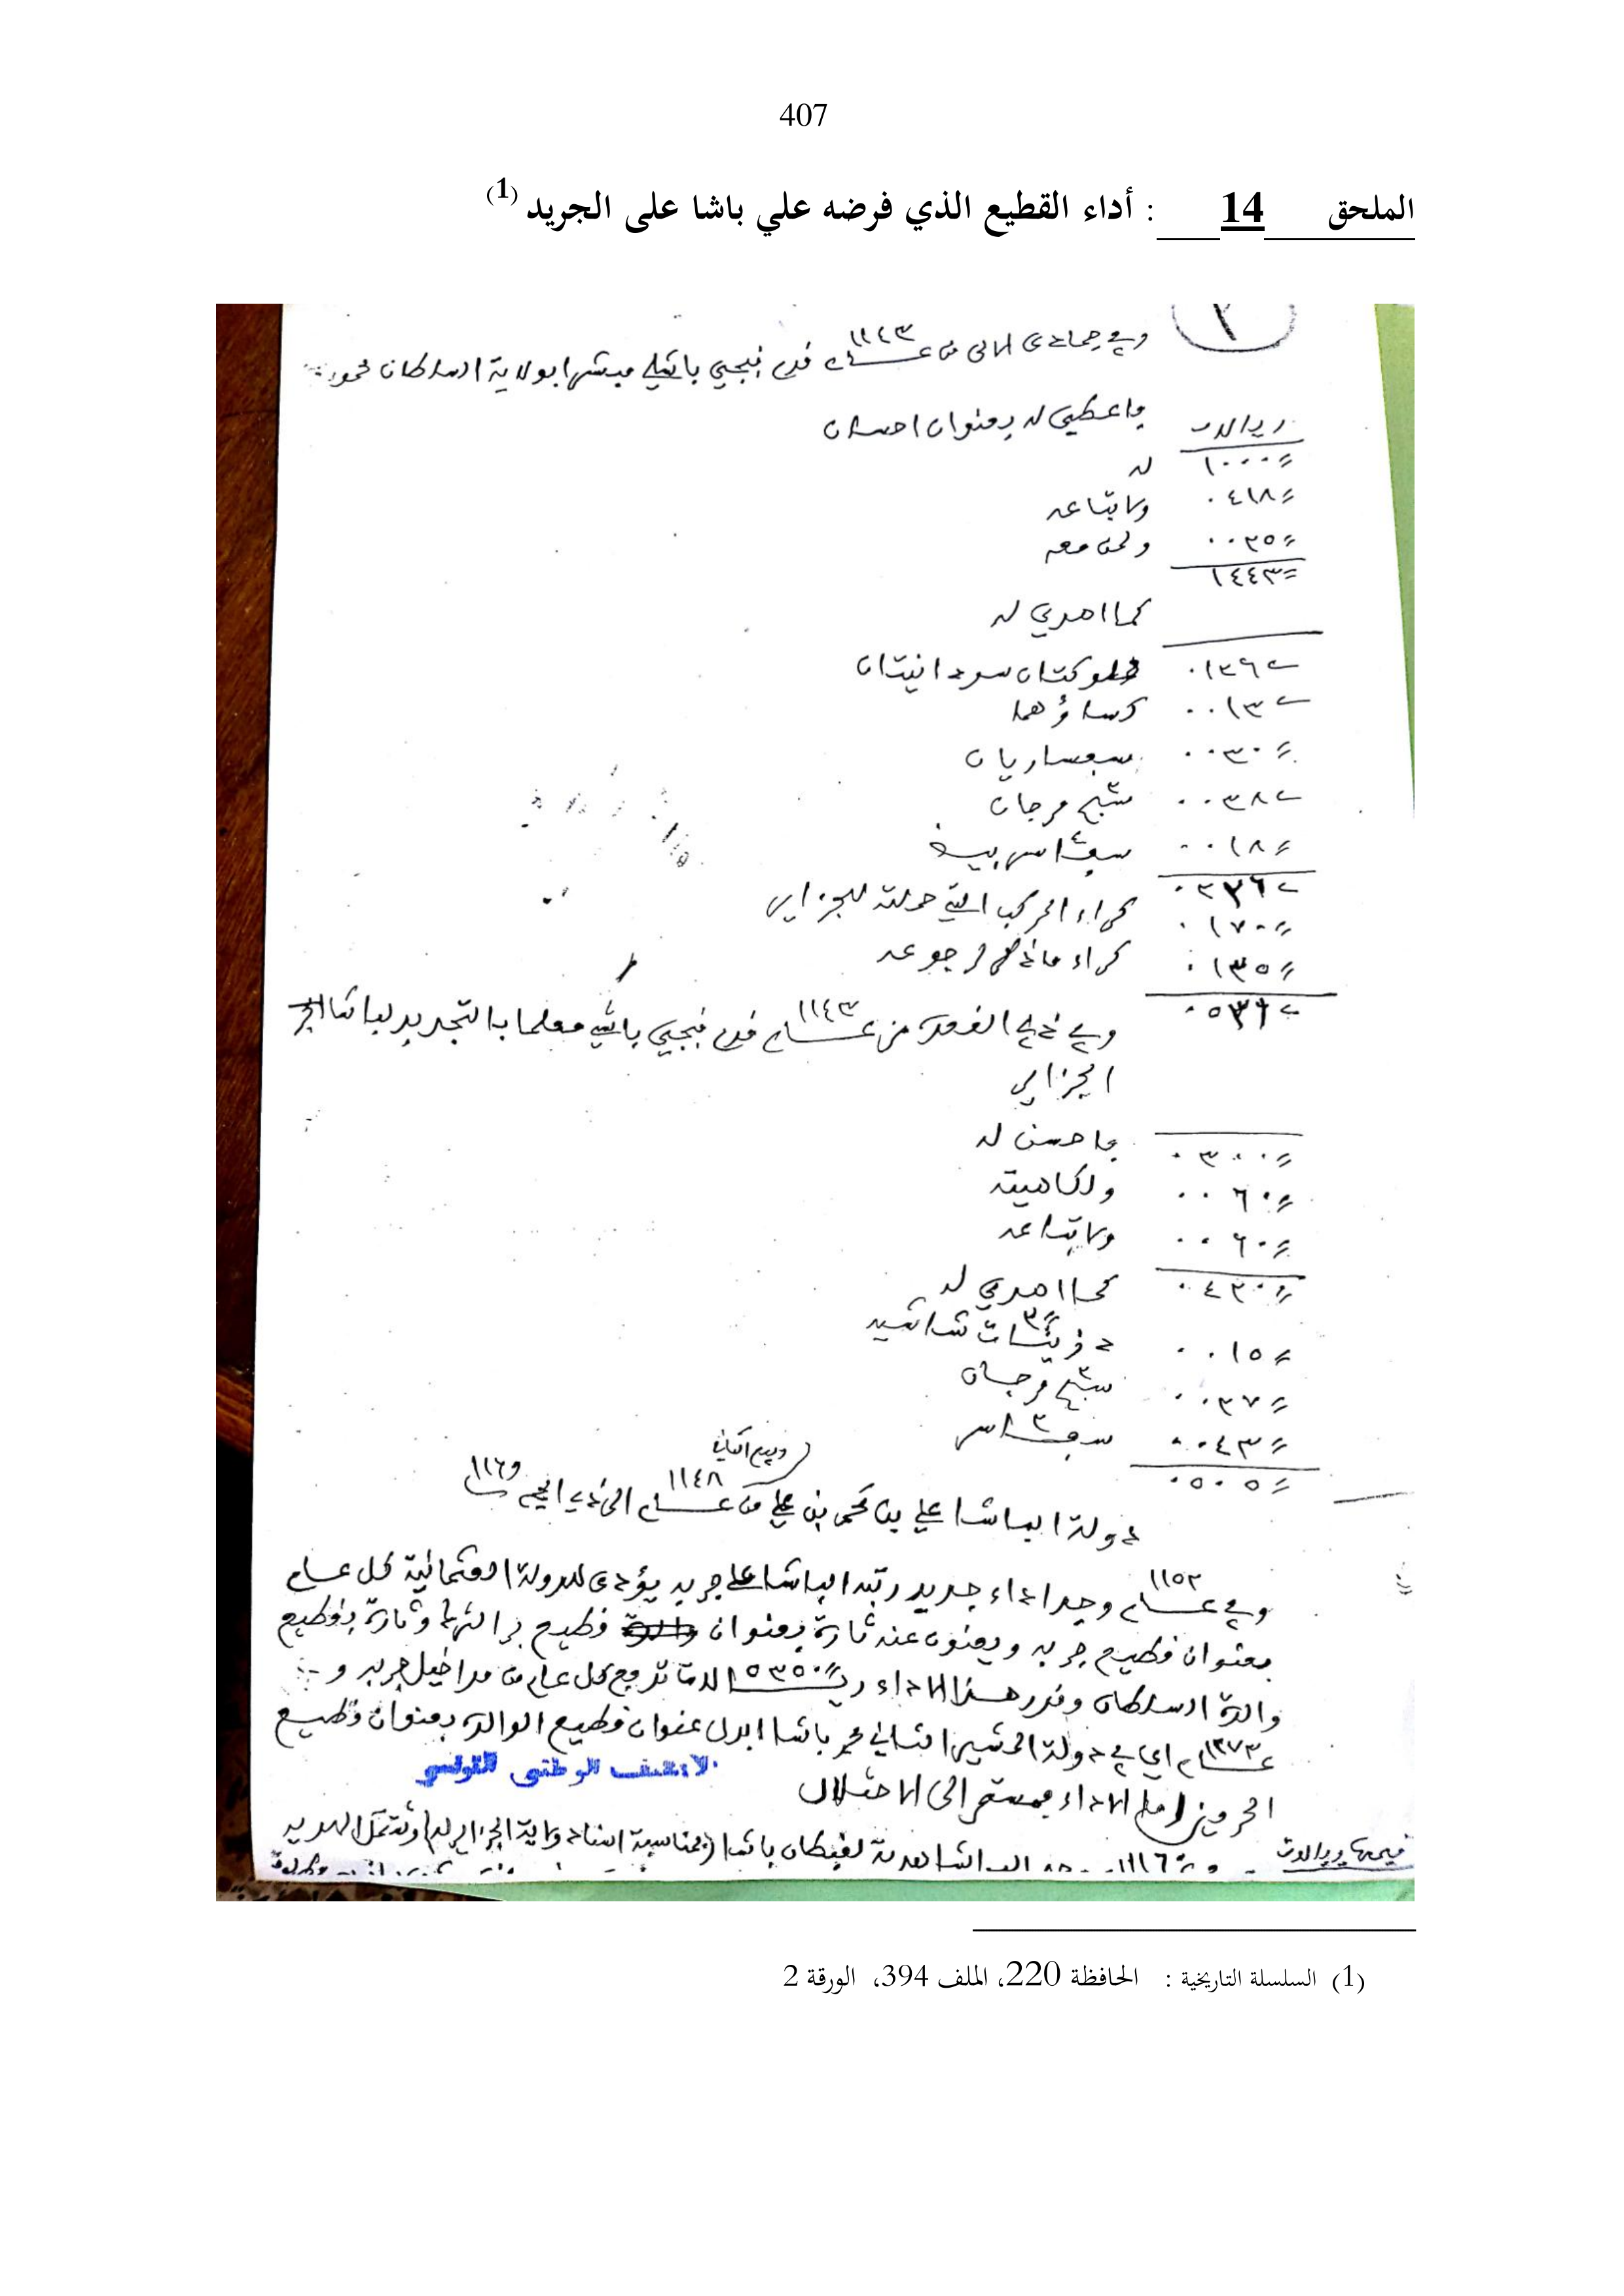 407
الملحق 14 : أداء القطيع الذي فرضه علي باشا على الجريد (1)
٢
وفي جمادى الثاني من عام ١١٤٣ قدم قبجي باشي مبشرا بولاية السلطان محمود
ريالات
واعطي له بعنوان احسان
١٠٠٠ له
٠٤١٨ ولاتباعه
٠٠٢٥ ولمن معه
١٤٤٣
كما اهدي له
٠١٣٦ مملوكتان سودانيتان
٠٠١٣ كساؤهما
٠٠٣٠ سفساريان
٠٠٣٨ ٣ سبح مرجان
٠٠١٨
٠٢٣٦
٠١٧٠ كراء المركب التي حملته للجزاير
٠١٣٥ كراء مركب رجوعه
٠٥٣٦
وفي ذي القعدة من عام ١١٤٣ قدم قبجي باشي معلما بالتجديد لباشا
الجزاير
٠٣٠٠ واحسن له
٠٠٦٠ ولكاهيته
٠٠٦٠ ولاتباعه
٠٤٢٠ كما اهدي له
٠٠١٥ شاشية
٠٠٢٧ ٣ سبح مرجان
٠٠٤٣
٠٥٠٥
ربيع الثاني
دولة الباشا علي بن محمد بن علي من عام ١١٤٨ الى ذي الحجة ١١٦٩
وفي عام ١١٥٢ وجد اداء جديد رتبه الباشا على جريد يؤدى للدولة العثمانية كل عام
بعنوان قطيع جريد ويعنون عنه تارة بعنوان قطيع دار الترك وتارة بقطيع
والدة السلطان وقدر هذا الاداء ريالات ١٥٣٥٠ تدفع كل عام من مداخيل جريد و
عام ١٢٧٣ اي في دولة المشير الثاني محمد باشا ابدل عنوان قطيع الوالدة بعنوان قطيع
الحرمين الاداء مستمر الى الاحتلال
الأرشيف الوطني التونسي
قيمتها ريالات
(1) السلسلة التاريخية : الحافظة 220، الملف 394، الورقة 2